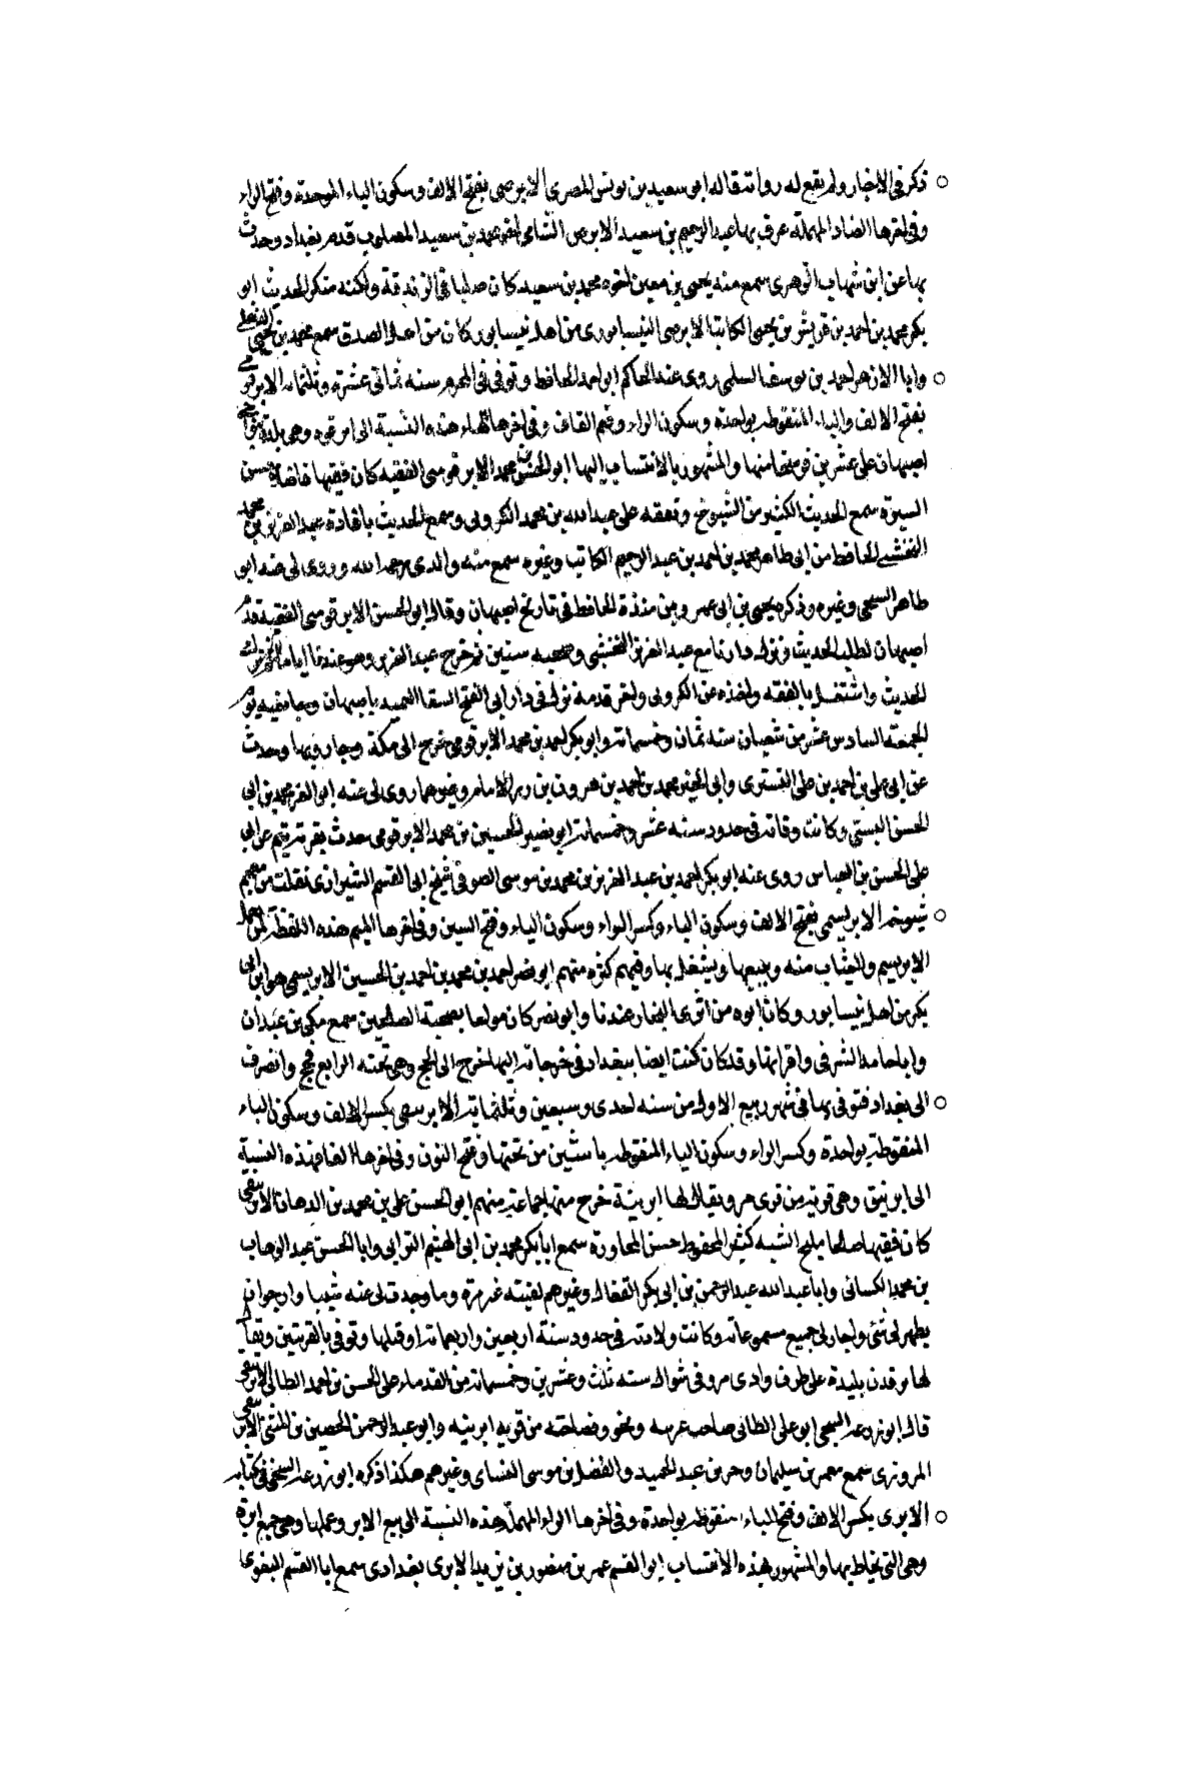 ذكر في الاخبار ولم يقع له رواية قاله ابو سعيد بن يونس المصرى الابرصى بفتح الالف وسكون الباء الموحدة وفتح الراء
وفى اخرها الصاد المهملة عرف بها عبد الرحيم بن سعيد الابرص الشامى اخو محمد بن سعيد المصلوب قدم بغداد وحدث
بها عن ابن شهاب الزهرى سمع منه يحيى بن معين اخوه محمد بن سعيد كان صلبا فى الزندقة ولكنه منكر الحديث ابو
بكر محمد بن احمد بن قريش بن يحيى الكاتب الابرصى النيسابورى من اهل نيسابور كان من اهل الصدق سمع محمد بن يحيى الذهلى
وابا الازهر احمد بن يوسف السلمى روى عنه الحاكم ابو احمد الحافظ وتوفى فى المحرم سنه ثمانى عشرة وثلثمائه الابرقوهى
بفتح الالف والباء المنقوطه بواحدة وسكون الراء وضم القاف وفى اخرها الهاء هذه النسبة الى ابرقوه وهى بليدة بنواحى
اصبهان على عشرين فرسخا منها والمشهور بالانتساب اليها ابو الحسن محمد الابرقوهى الفقيه كان فقيها فاضلا حسن
السيرة سمع الحديث الكثير من الشيوخ وتفقه على عبد الله بن محمد الكرونى وسمع الحديث بافادة عبد العزيز بن محمد
النخشبى الحافظ من ابى طاهر محمد بن احمد بن عبد الرحيم الكاتب وغيره سمع منه والدى رحمه الله وروى لى عنه ابو
طاهر السنجى وغيره وذكره يحيى بن ابى عمرو بن منذة الحافظ فى تاريخ اصبهان وقال ابو الحسن الابرقوهى الفقيه قدم
اصبهان لطلب الحديث ونزل دارنا مع عبد العزيز النخشبى وصحبه سنتين ثم خرج عبد العزيز وهو عندنا اياما
الحديث واشتغل بالفقه واخذه عن الكرونى واخر قدمة نزل فى دار ابى الفتح السقا باصبهان وبها يوم
الجمعة السادس عشر من شعبان سنه ثمان وخمسمائه وابو بكر احمد بن محمد الابرقوهى خرج الى مكة وجاور بها وحدث
عن ابى على بن احمد بن على التسترى وابى الخير محمد بن احمد بن هرون بن ررا الامام وغيرهما روى لى عنه ابو العز محمد بن ابى
الحسن البستى وكانت وفاته فى حدود سنه عشر وخمسمائه ابو نصر الحسين بن محمد الابرقوهى حدث بقرية عن ابى
على الحسن بن العباس روى عنه ابو بكر احمد بن عبد العزيز بن محمد بن موسى الصوفى شيخ ابى القسم الشيرازى نقلت من معجم
شيوخه الابريسمى بفتح الالف وسكون الباء وكسر الراء وسكون الياء وفتح السين وفى اخرها الميم هذه اللفظة لمن يعمل
الابريسم والثياب منه ويبيعها ويشتغل بها وفيهم كثره منهم ابو نصر احمد بن محمد بن احمد بن الحسين الابريسمى هو ابن ابى
بكر من اهل نيسابور وكان ابوه من اثرى التجار عندنا وابو نصر كان مولعا بصحبة الصالحين سمع مكى بن عبدان
وابا حامد الشرقى واقرانها وقد كان كتب ايضا ببغداد فى خرجاته اليها خرج الى الحج وهى حجته الرابع فحج وانصرف
الى بغداد فتوفى بها فى شهور ربيع الاول من سنه احدى وسبعين وثلثمائه الابرينقى بكسر الالف وسكون الباء
المنقوطه بواحدة وكسر الراء وسكون الياء المنقوطه باثنتين من تحتها وفتح النون وفى اخرها القاف هذه النسبة
الى ابرينق وهى قرية من قرى مرو يقال لها ابرينة خرج منها جماعة منهم ابو الحسن على بن محمد بن الدهان الابرينقى
كان فقيها صالحا مليح الشيبه كثير المحفوظ حسن المحاورة سمع ابا بكر محمد بن ابى الهيثم الترابى وابا الحسن عبد الوهاب
بن محمد الكسانى وابا عبد الله عبد الرحمن بن ابى بكر القفال وغيرهم لقيته غير مرة وما وجدت لى عنه شيئا وارجو ان
يظهر لى شئى واجاز لى جميع مسموعاته وكانت ولادته فى حدود سنة اربعين واربعمائه او قبلها وتوفى بالقرينين ويقال
لها بركدن بليدة على طرف وادى مرو فى شوال سنه ثلث وعشرين وخمسمائه من القدماء على الحسن بن احمد الطائى الابرينقى
قال ابو زرعه السنجى ابو على الطائى صاحب عربيه ونحو وفصاحته من قريه ابرينه وابو عبد الرحمن الحصين بن المثنى الابرينقى
المروزى سمع معمر بن سليمان وجرير بن عبد الحميد والفضل بن موسى السينانى وغيرهم هكذا ذكره ابو زرعه السنجى فى كتابه
الابرى بكسر الالف وفتح الباء المنقوطه بواحدة وفى اخرها الراء المهملة هذه النسبة الى بيع الابر وعملها وهى جمع ابرة
وهى التى يخاط بها والمشهور بهذه الانتساب ابو القسم عمر بن منصور بن يزيد الابرى بغدادى سمع ابا القسم البغوى